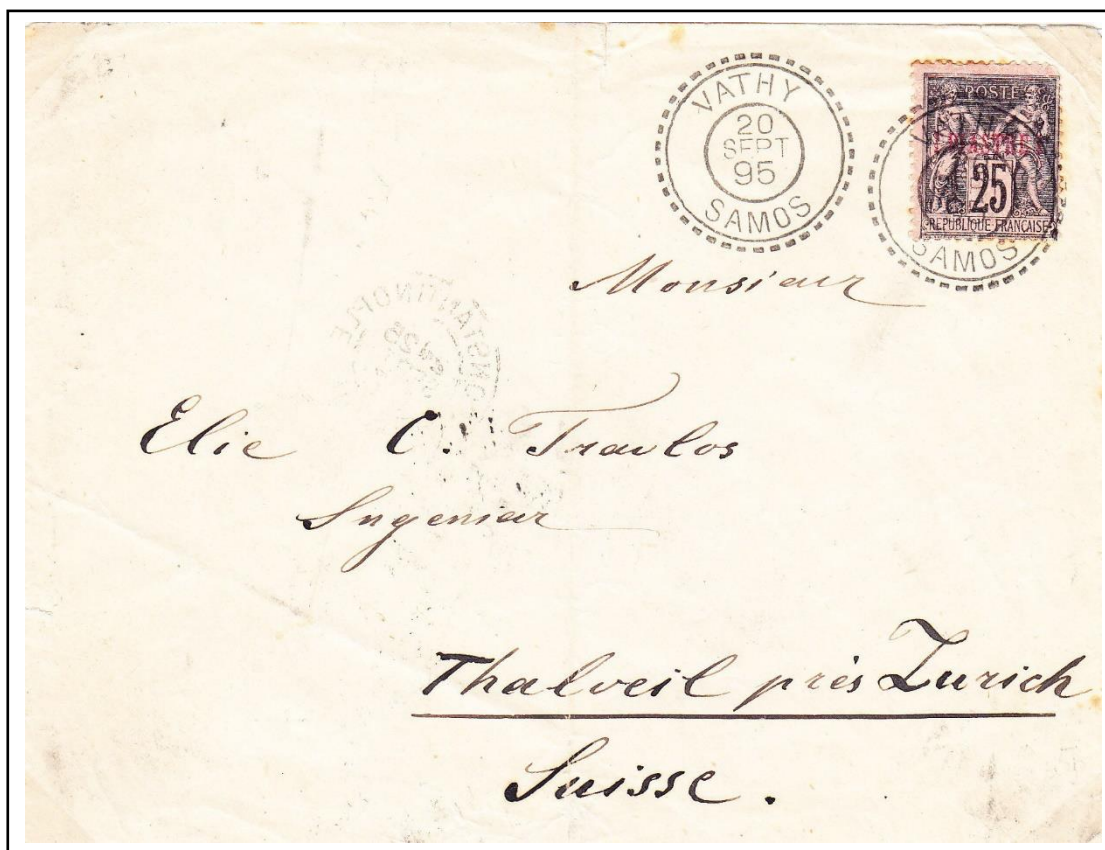 VATHY
20
SEPT
95
SAMOS
POSTE
VATHY
PIASTRE
25
REPUBLIQUE FRANÇAISE
SAMOS
Monsieur
Elie C. Travlos
Ingenieur
Thalveil près Zurich
Suisse.